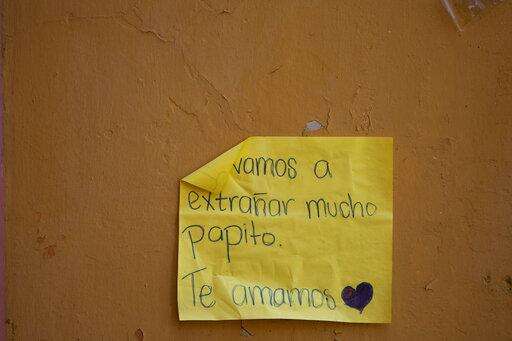 vamos a
extrañar mucho
papito.
Te amamos